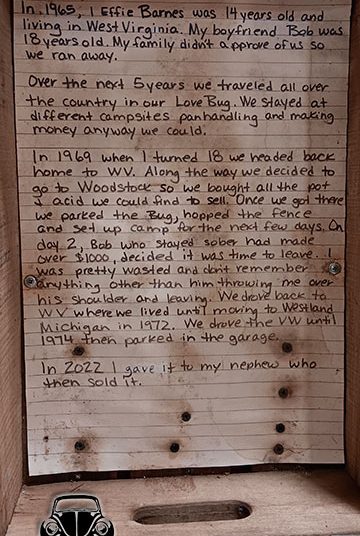 In 1965, I Effie Barnes was 14 years old and
living in West Virginia. My boyfriend Bob was
18 years old. My family didn't approve of us so
we ran away.
Over the next 5 years we traveled all over
the country in our Love Bug. We stayed at
different campsites panhandling and making
money anyway we could.
In 1969 when I turned 18 we headed back
home to WV. Along the way we decided to
go to Woodstock so we bought all the pot
& acid we could find to sell. Once we got there
we parked the Bug, hopped the fence
and set up camp for the next few days. On
day 2, Bob who stayed sober had made
over $1000, decided it was time to leave. I
was pretty wasted and don't remember
anything other than him throwing me over
his shoulder and leaving. We drove back to
WV where we lived until moving to Westland
Michigan in 1972. We drove the VW until
1974 then parked in the garage.
In 2022 I gave it to my nephew who
then sold it.